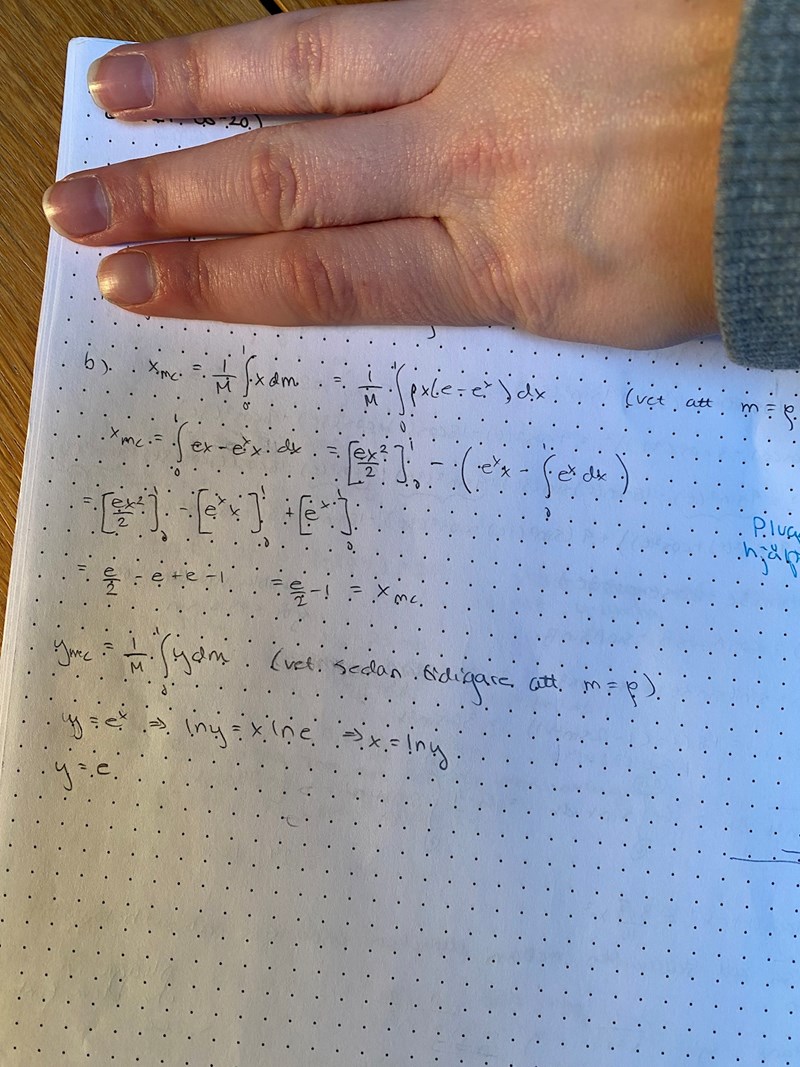 b). x_mc = 1/M ∫₀¹ x dm = 1/M ∫₀¹ ρx(e-eˣ)dx (vet att m=ρ
x_mc = ∫₀¹ ex-eˣx dx = [ex²/2]₀¹ - (eˣx - ∫₀¹ eˣ dx)
= [ex²/2]₀¹ - [eˣx]₀¹ + [eˣ]₀¹
= e/2 - e + e - 1 = e/2 - 1 = x_mc
y_mc = 1/M ∫₀¹ y dm (vet sedan tidigare att m=ρ)
y = eˣ ⇒ ln y = x ln e ⇒ x = ln y
y = e